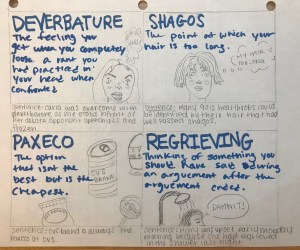 DEVERBATURE
The feeling you
get when you completely
loose a rant you
had practiced in
your head when
confronted
Sentence: Carla was overcome with
deverbature as she stood infront of
her debate opponent speechless and
frozen.
SHAGOS
The point at which your
hair is too long.
Sentence: Many 90's heartthrobs could
be identified by their hair that had
well passed shagos.
PAXECO
The option
that isnt the
best but is the
cheapest.
CVS
BRAND
Sentence: CVS brand is always the
paxeco at CVS.
REGRIEVING
Thinking of something you
should have said during
an arguement after the
arguement ends.
DAMNIT!
in the shower last night.